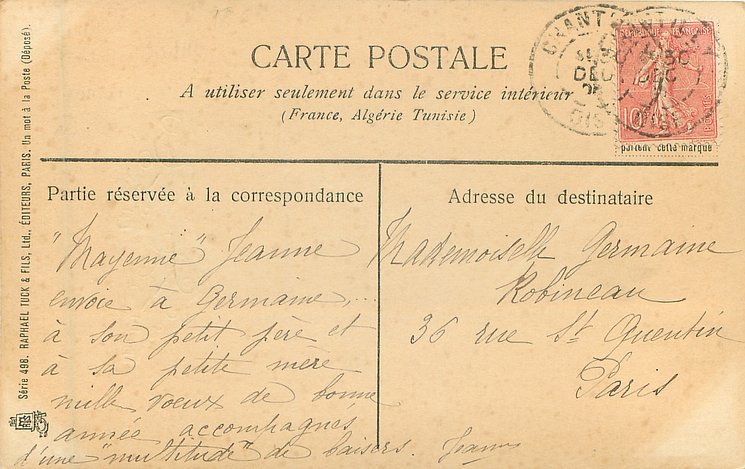 CARTE POSTALE
A utiliser seulement dans le service intérieur
(France, Algérie Tunisie)
REPUBLIQUE FRANÇAISE
10
POSTES
CHANTILLY
DEC
OISE
portent cette marque
Partie réservée à la correspondance
"Mayenne" Jeanne
envoie à Germaine,
à son petit père et
à sa petite mère
mille voeux de bonne
année accompagnés
d'une "multitude" de baisers. Jeanne
Adresse du destinataire
Mademoiselle Germaine
Robineau
36 rue St Quentin
Paris
Série 498. RAPHAEL TUCK & FILS, Ltd., ÉDITEURS, PARIS. Un mot à la Poste (Déposé).